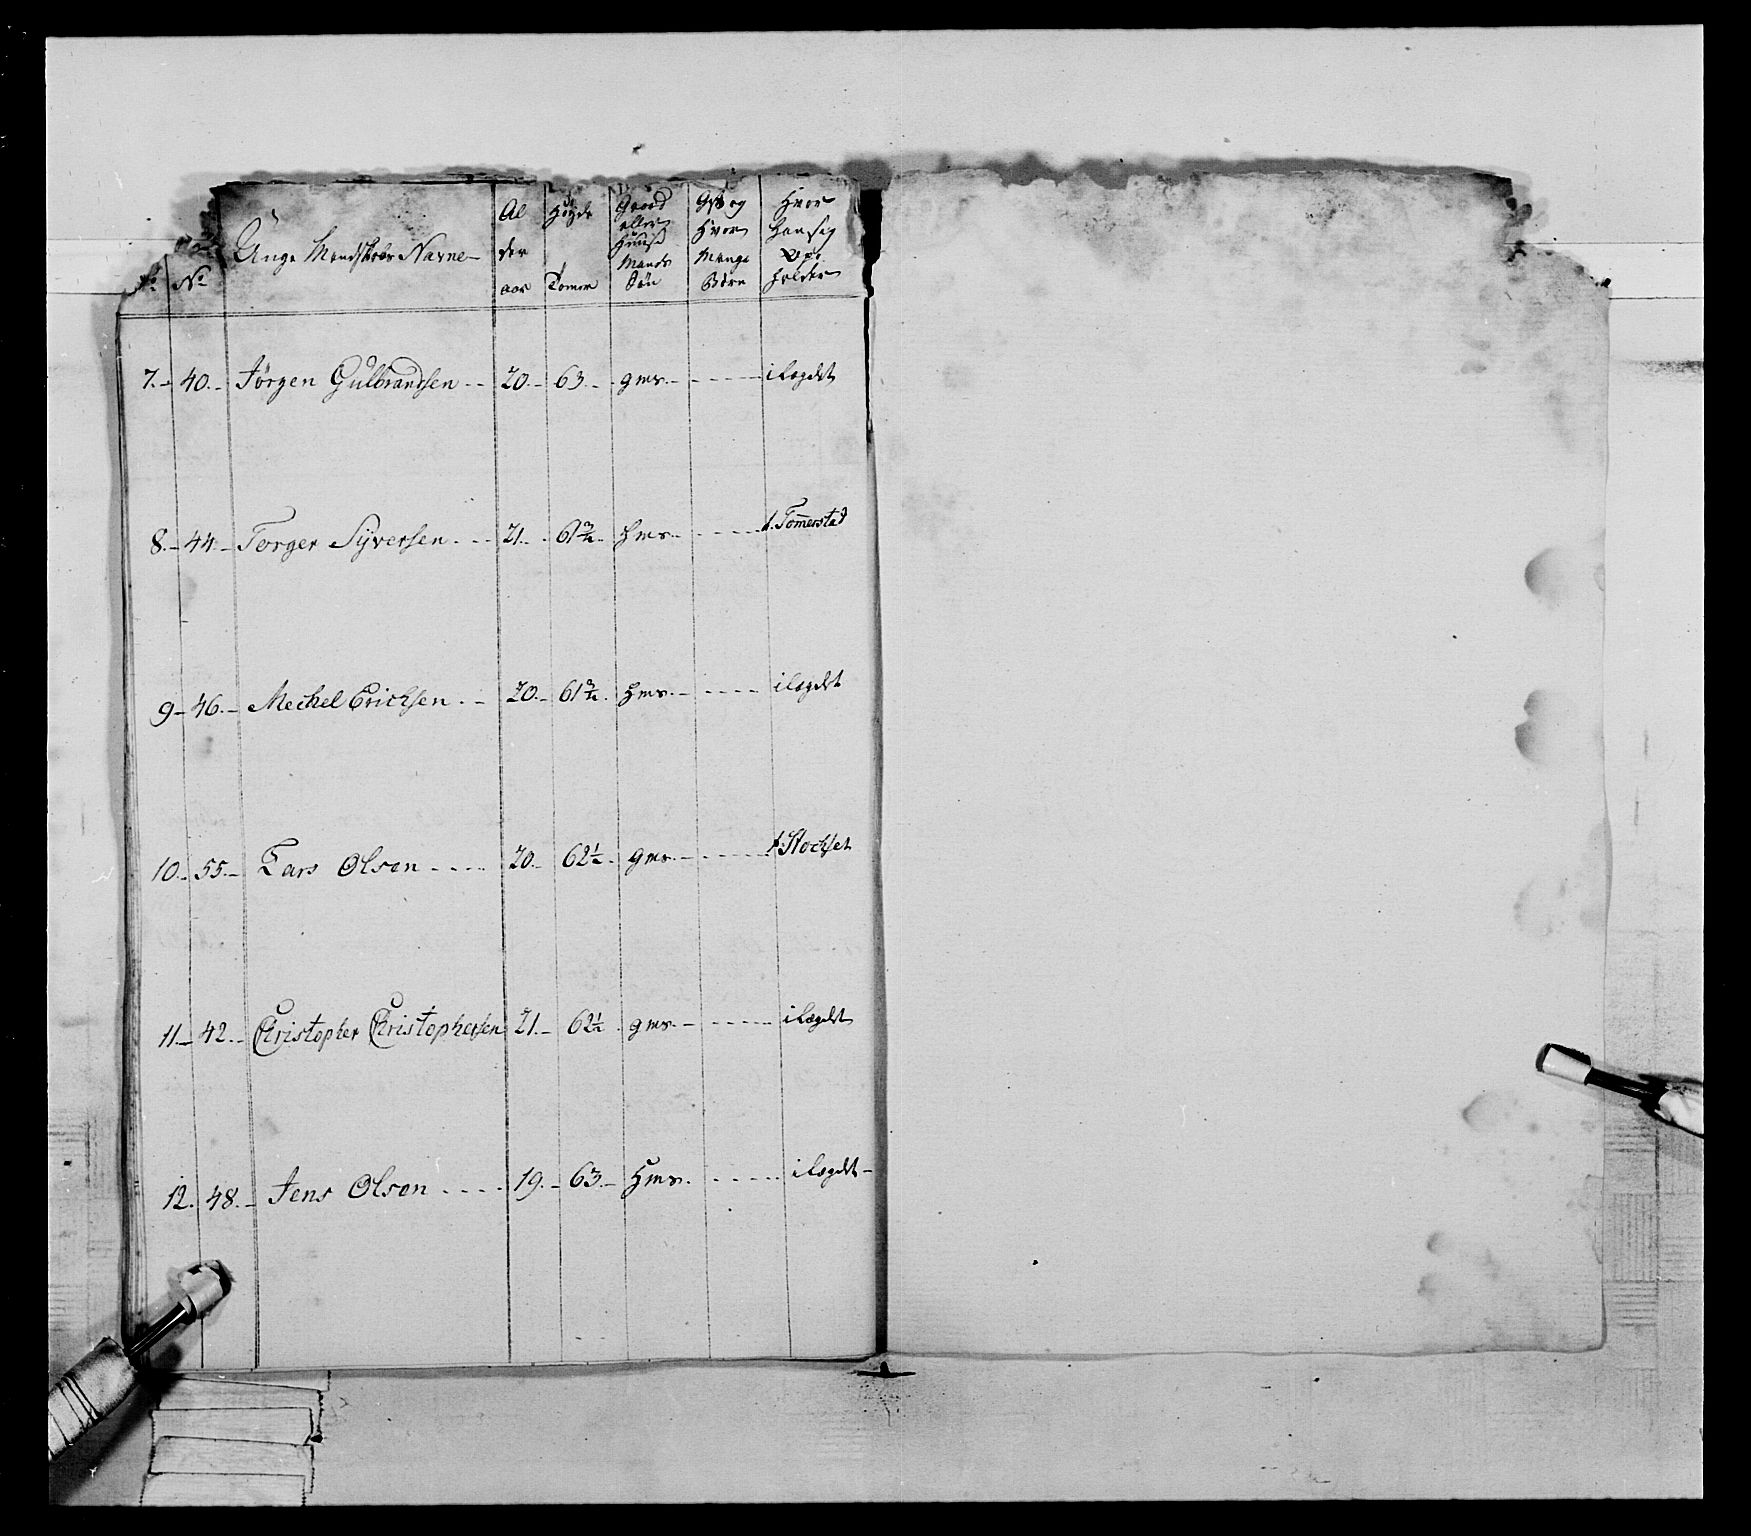 No No Unge Mandskabs Navne Al der aar Høyde Tomer Gaard eller Huus Mands Søn Gift og Hvor Mange Børn Hvor Han sig Op holder
7. 40. Jørgen Gulbrandsen 20. 63. gms. i Legdet
8. 44. Torger Syversen 21. 61 3/4 hms. Tommerstad
9 46. Mechel Erichsen 20. 61 3/4 hms. i Legdet
10. 55. Lars Olsen 20. 62 1/2 gms. Stochset
11. 42. Christopher Christophersen 21. 62 1/2 gms. i Legdet
12. 48. Jens Olsen 19. 63. Hms. i Legdet